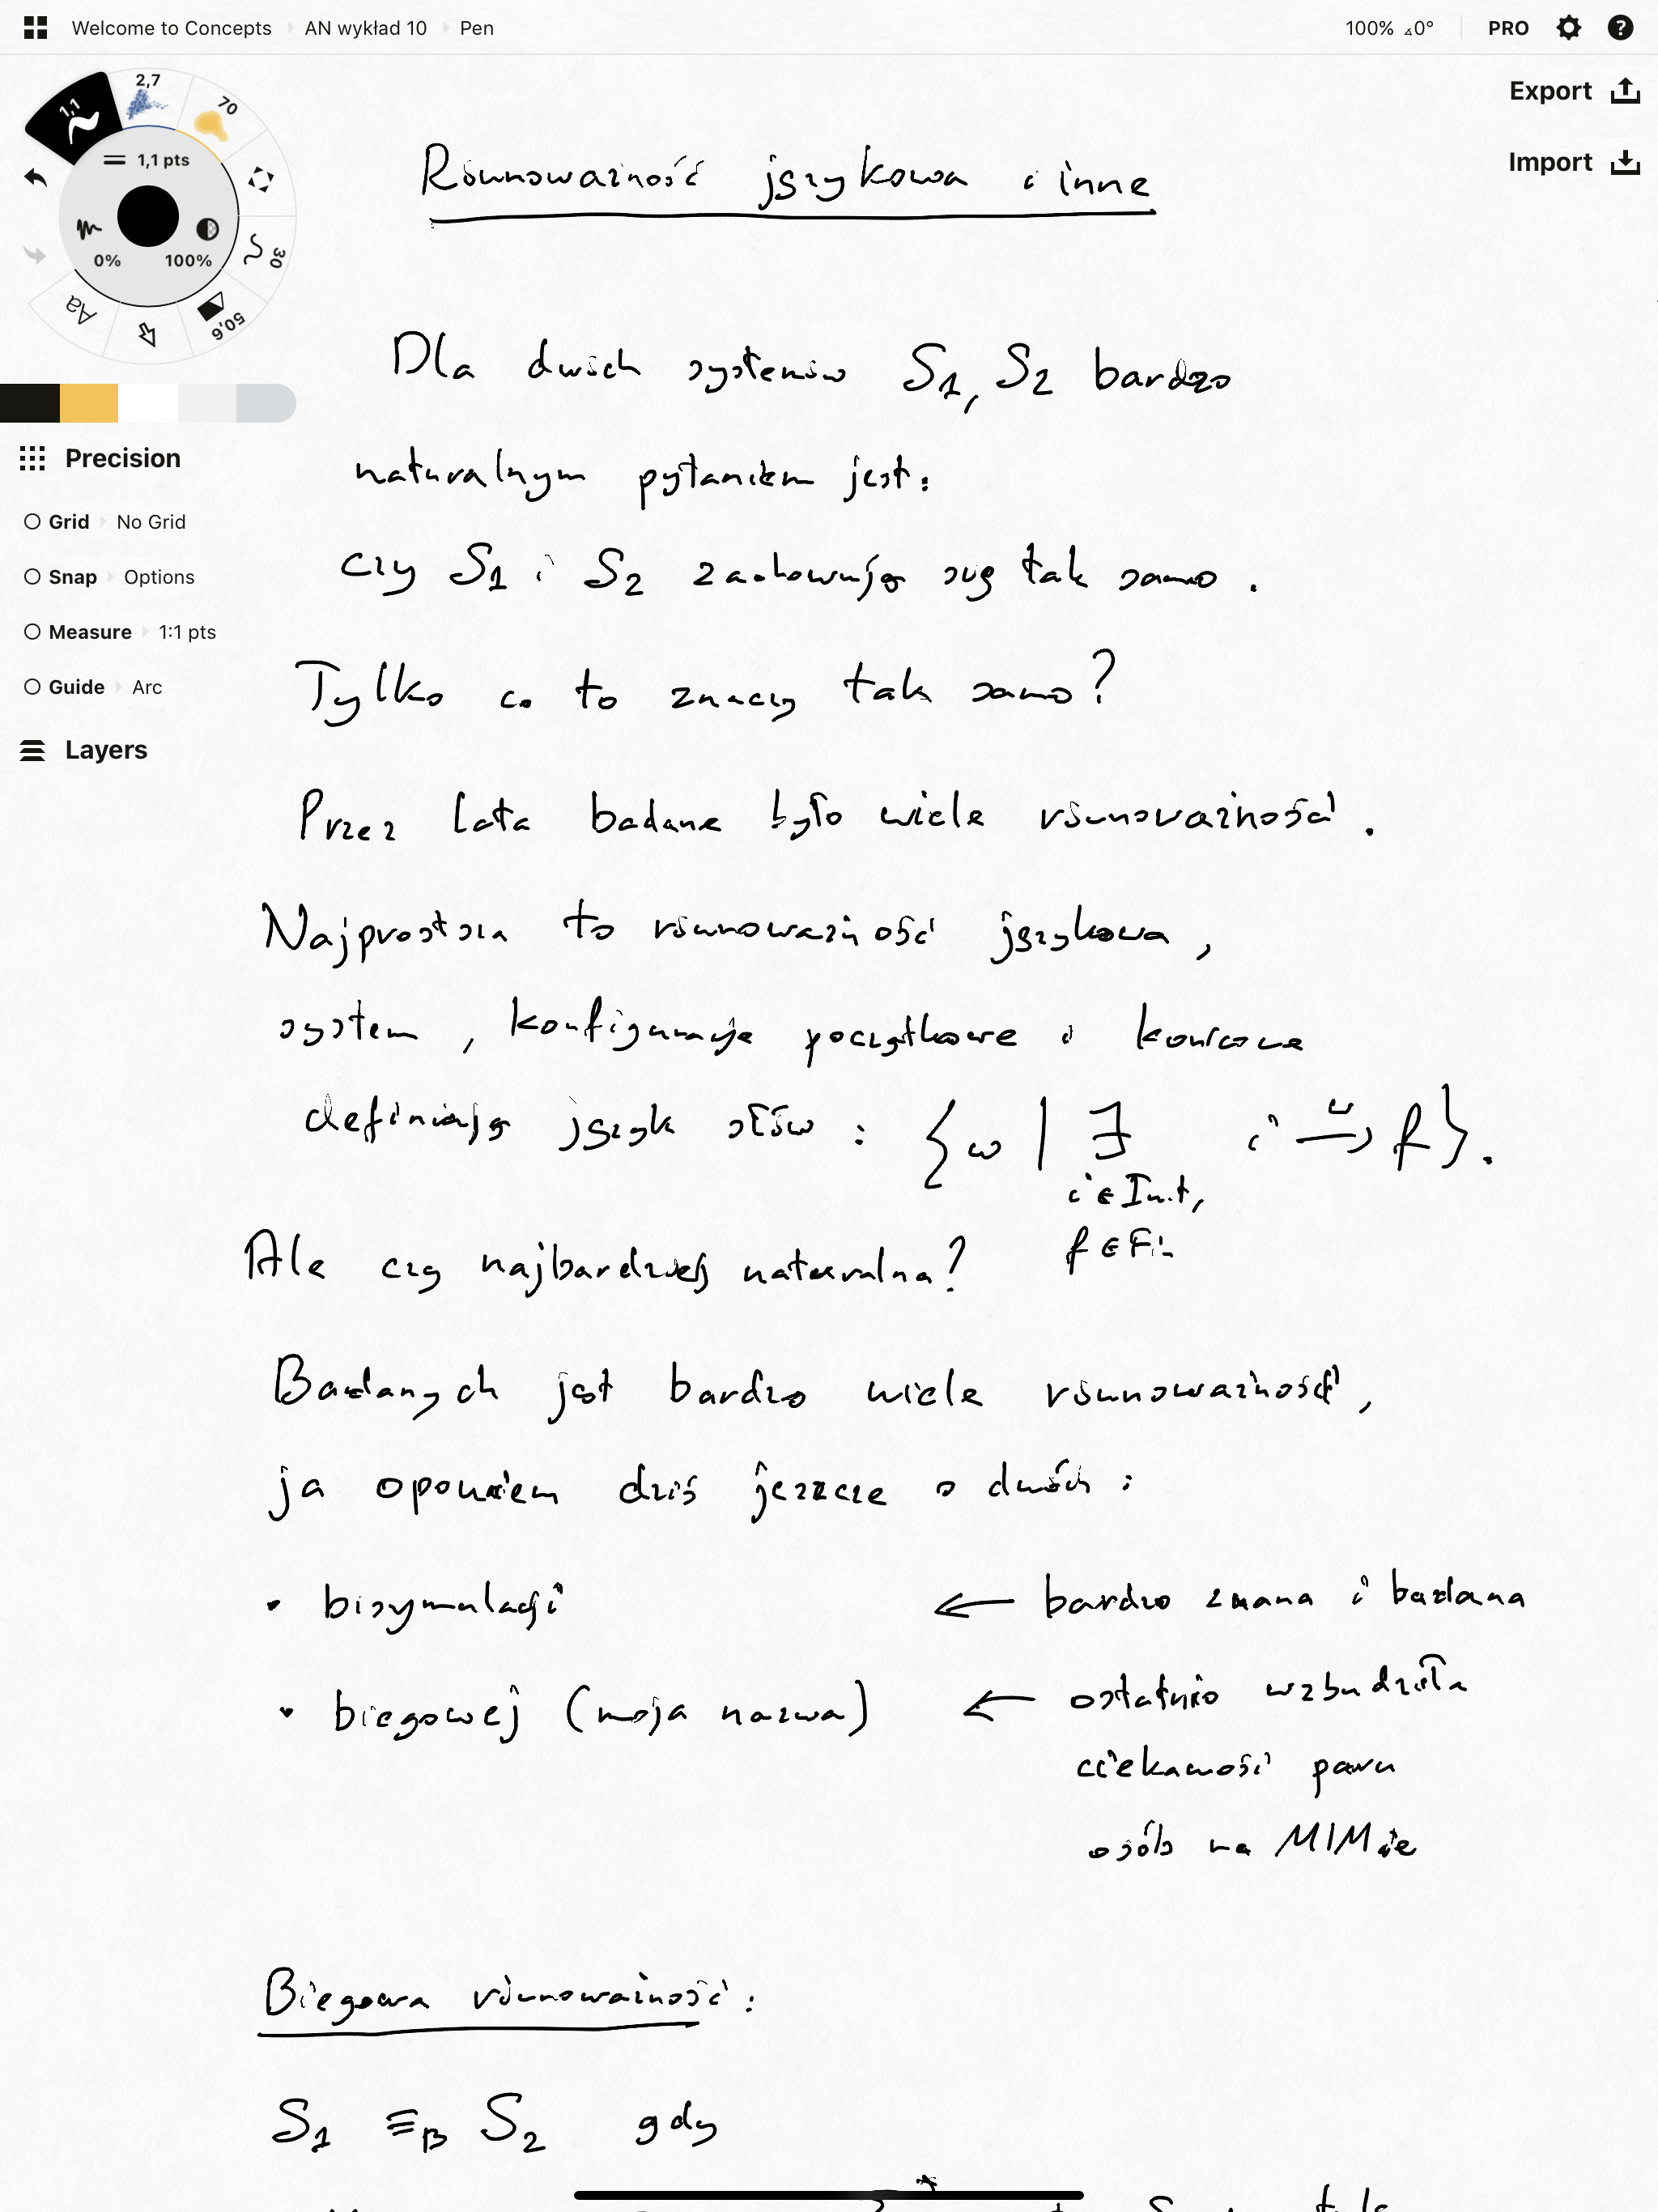 Welcome to Concepts AN wykład 10 Pen
100% ⊿0° PRO
Export
Import
1,1
2,7
70
30
50,6
Aa
1,1 pts
0% 100%
Precision
Grid No Grid
Snap Options
Measure 1:1 pts
Guide Arc
Layers
Równoważność językowa i inne
Dla dwóch systemów S1, S2 bardzo
naturalnym pytaniem jest:
czy S1 i S2 zachowują się tak samo.
Tylko co to znaczy tak samo?
Przez lata badane było wiele równoważności.
Najprostsza to równoważność językowa,
system, konfiguracje początkowe i końcowe
definiują język słów: {w | ∃ i →w f}.
i ∈ Init,
f ∈ Fin
Ale czy najbardziej naturalna?
Badanych jest bardzo wiele równoważności,
ja opowiem dziś jeszcze o dwóch:
• bisymulacji ← bardzo znana i badana
• biegowej (moja nazwa) ← ostatnio wzbudziła
ciekawość paru
osób na MIMie
Biegowa równoważność:
S1 ≡B S2 gdy